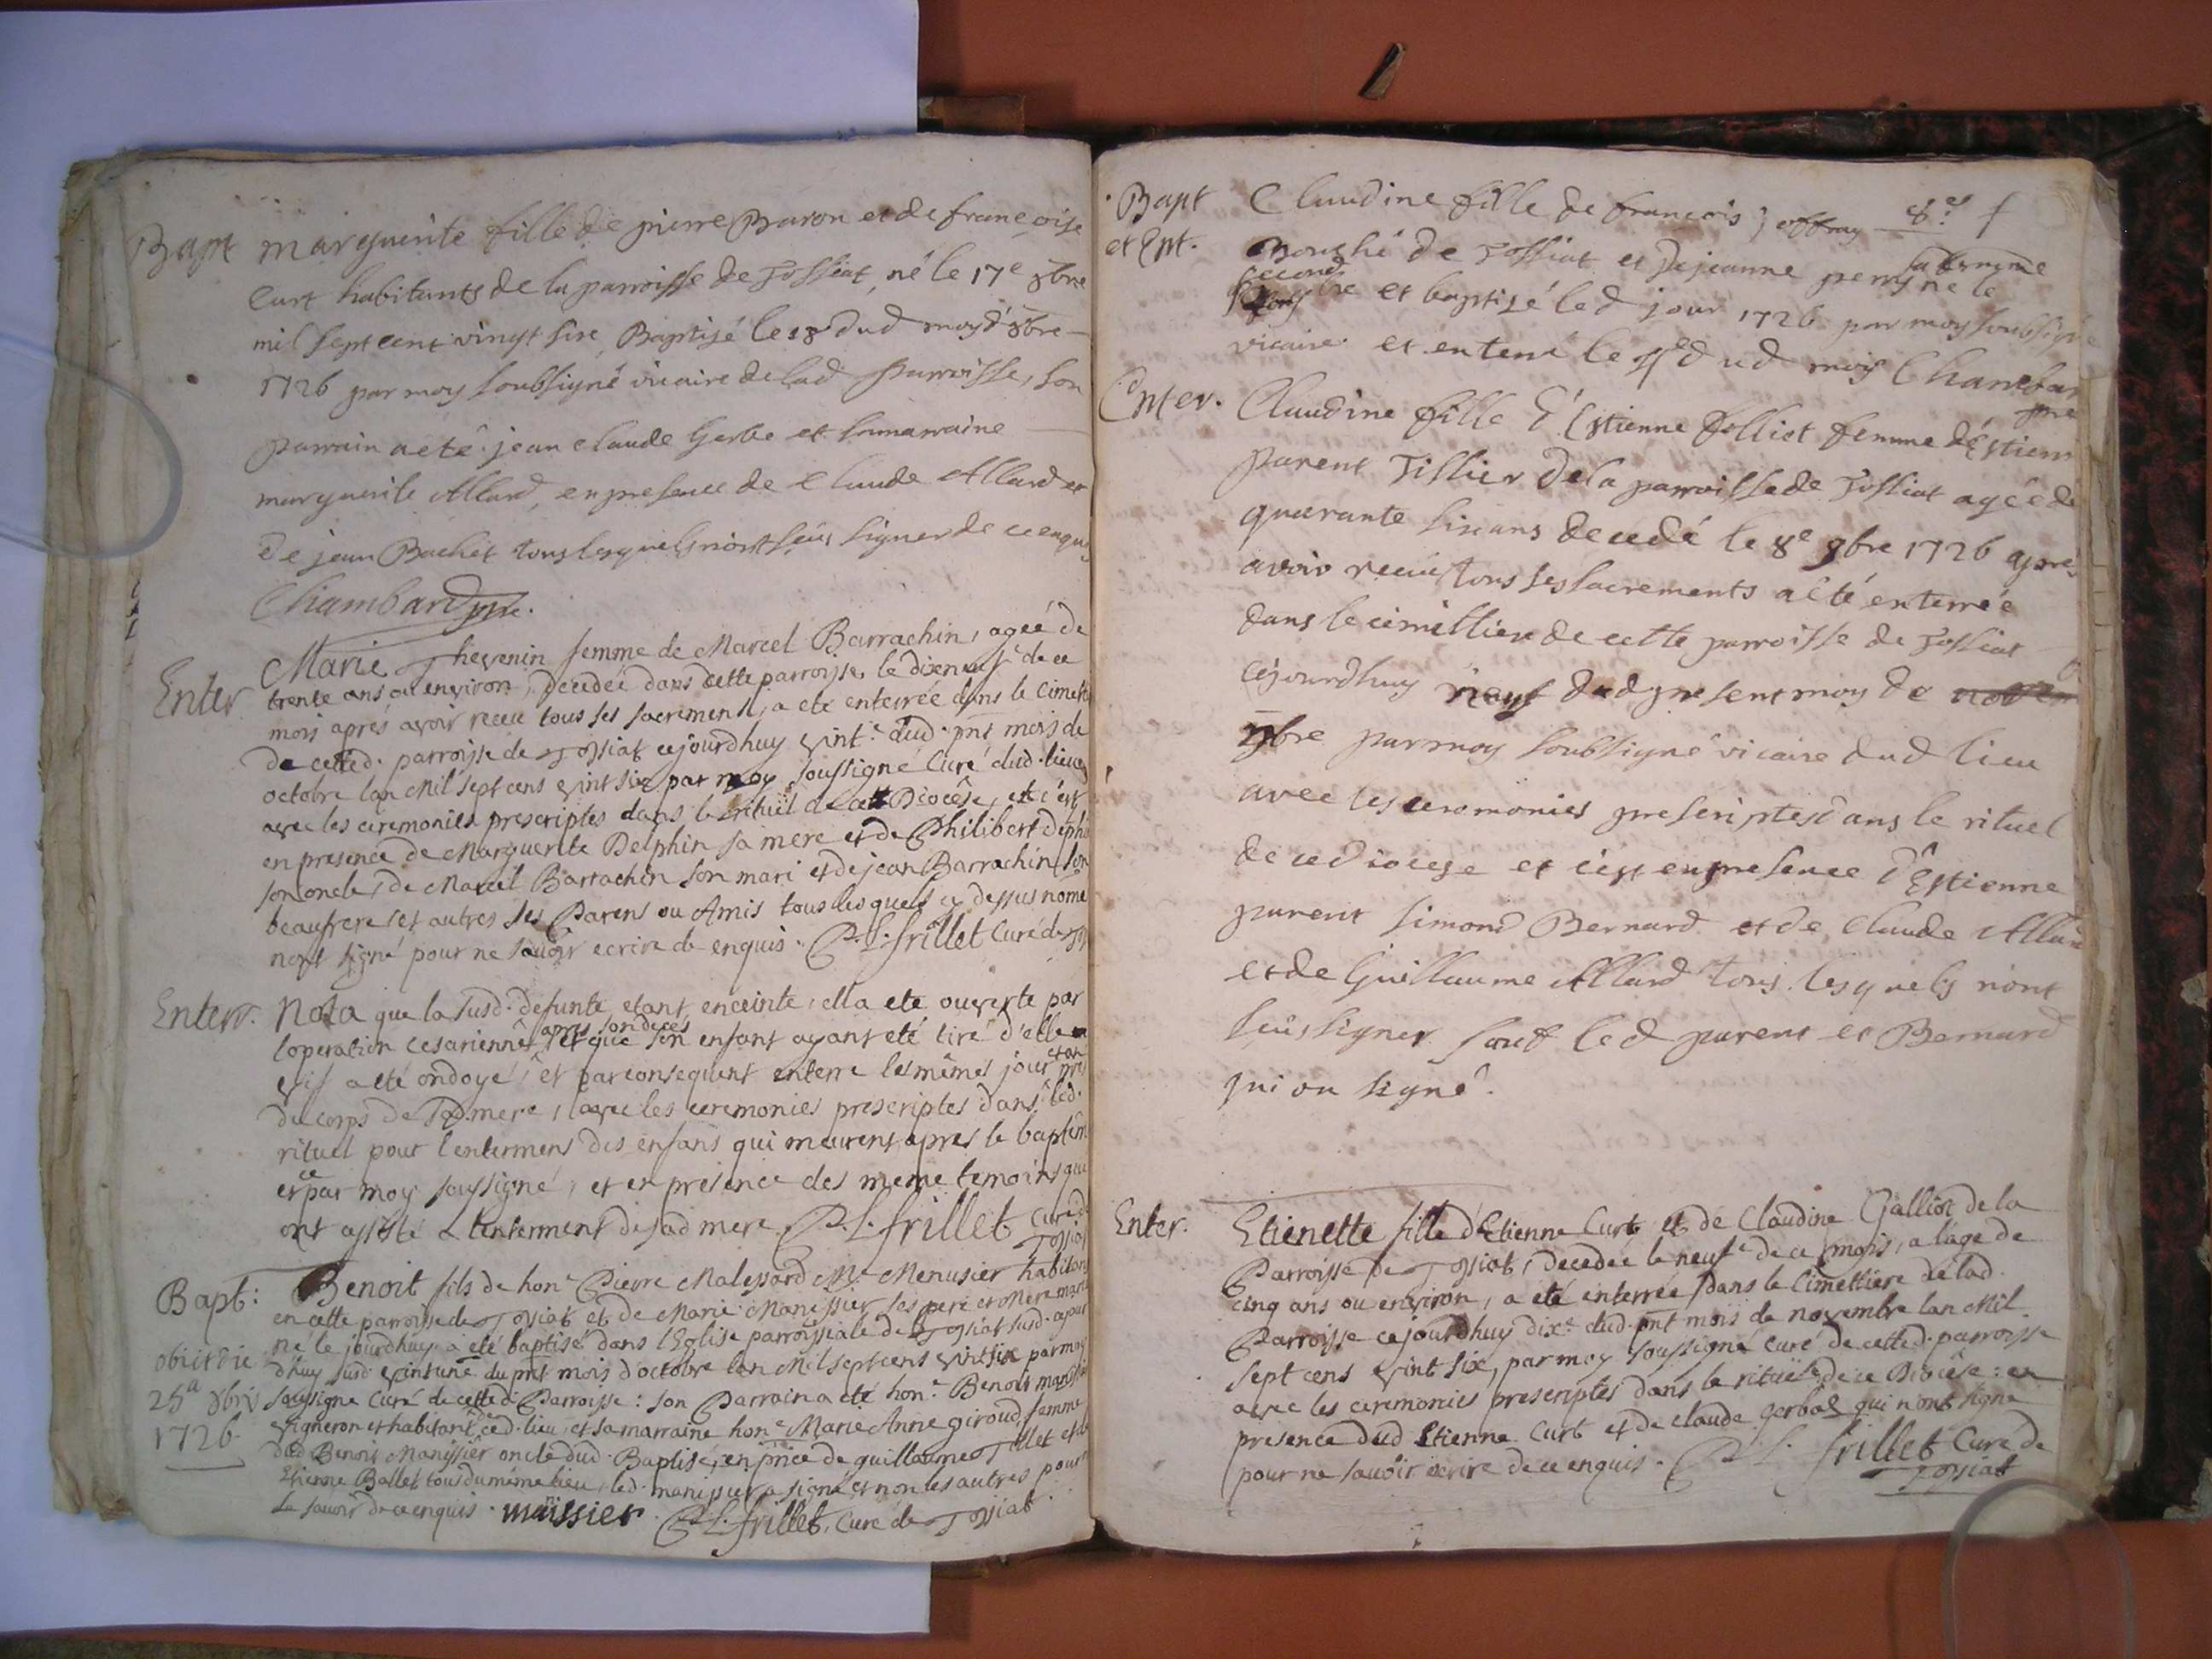 Bapt marguerite fille de pierre Baron et de francoise
Curt habitants de la parroisse de Tossiat, né le 17e 8bre
mil sept cent vingt sixe, Baptisé le 18 dud moy d'8bre
1726 par moy soubsigné vicaire de lad parroisse, son
parrain a eté jean claude Gerbe et la marraine
marguerite Allard, en presence de Claude Allard et
de jean Bachet tous lesquels n'ont seus signer de ce enquis
Chambard ptre.
Enter Marie Thevenin femme de Marcel Barrachin, agée de
trente ans ou environ, decedée dans cette parroisse le dixneufe de ce
mois aprés avoir receu tous ses sacremens, a eté enterrée dans le Cimett
de cetted. parroisse de Tossiat cejourdhuy vinte dud. pnt mois de
octobre lan Mil sept cens vint six par moy soussigné Curé dud. lieu
avec les ceremonies prescriptes dans le rituel de cett Diocêse, et c'est
en presence de Marguerite Delphin sa mere et de Philibert Delphi
son oncle, de Marcel Barrachin son mari et de jean Barrachin son
beaufrere et autres ses Parens ou Amis tous lesquels cy dessus nomé
nont signé pour ne savoir ecrire de enquis. P. L. frillet Curé de
Enterr. Nota que la susd. defunte etant enceinte, ella eté ouverte par
loperation cesariennê apres son deces et que son enfant ayant eté tiré d'elle
vif a eté ondoyé, et par consequent enterré les mêmes jour et an pres
du corps de sad. mere, avec les ceremonies prescriptes dans led.
rituel pour lenterment des enfans qui meurent apres le baptem
et ce par moy soussigné, et en presence des meme temoins que
ont assisté a lenterment de sad mere P. L. frillet Curé d
Tossiat
Bapt: Benoit fils de hone Pierre Malessard Me Menusier habitant
en cette parroisse de Tossiat et de Marie Manissier ses pere et Mere marié
né le jourdhuy a eté baptisé dans lEglise parroissiale de Tossiat susd. aujour
obiit die dhuy susd. vintune du pnt mois d'octobre lan Mil sept cens vint six par moy
25a 8bris soussigné Curé de cetted. Parroisse: son Parrain a eté hone Benoit manissi
1726 vigneron et habitant ced. lieu et sa marraine hone Marie Anne giroud femme
dud Benoit Manissier oncle dud. Baptisé, en pnce de guillaume Tillet et de
Etienne Ballet tous du même lieu, led. manissier a signé et non les autres pour
ne savoir de ce enquis. manissier P. L. frillet, Curé de Tossiat
Bapt Claudine fille de francois joffray
et Ent. de Tossiat et de jeanne perry sa femme né le
second 9bre et baptisé led jour 1726 par moy soubsigné
vicaire et enterré le dud mois Chambar
ptre
Enter. Claudine fille d'Estienne folliet femme d'Estienn
parent Tissier de la parroisse de Tossiat agée de
quarante six ans decedé le 8e 9bre 1726 apres
avoir receu tous ses sacrements a eté enterrée
dans le cimettiere de cette parroisse de Tossiat
cejourdhuy neuf dud present moy de
9bre par moy soubsigné vicaire dud lieu
avec les ceremonies prescriptes dans le rituel
de ce diocese et c'est en presence d'Estienne
parent simond Bernard et de claude Allard
et de Guillaume Allard tous lesquels n'ont
seus signer sauf led parent et Bernard
qui on signé.
Enter. Etienette fille d'Etienne Curt et de Claudine Galliot de la
Parroisse de Tossiat, decedée le neufe de ce mois, a lâge de
cinq ans ou environ, a eté enterrée dans le Cimettiere de lad.
Parroisse cejourdhuy dixe dud. pnt mois de novembre lan Mil
sept cens vint six, par moy soussigné curé de cetted. parroisse
avec les ceremonies prescriptes dans le rituël de ce Diocêse: en
presence dud Etienne Curt et de claude gerbal qui n'ont signé
pour ne savoir ecrire de ce enquis. P. L. frillet Curé de
Tossiat